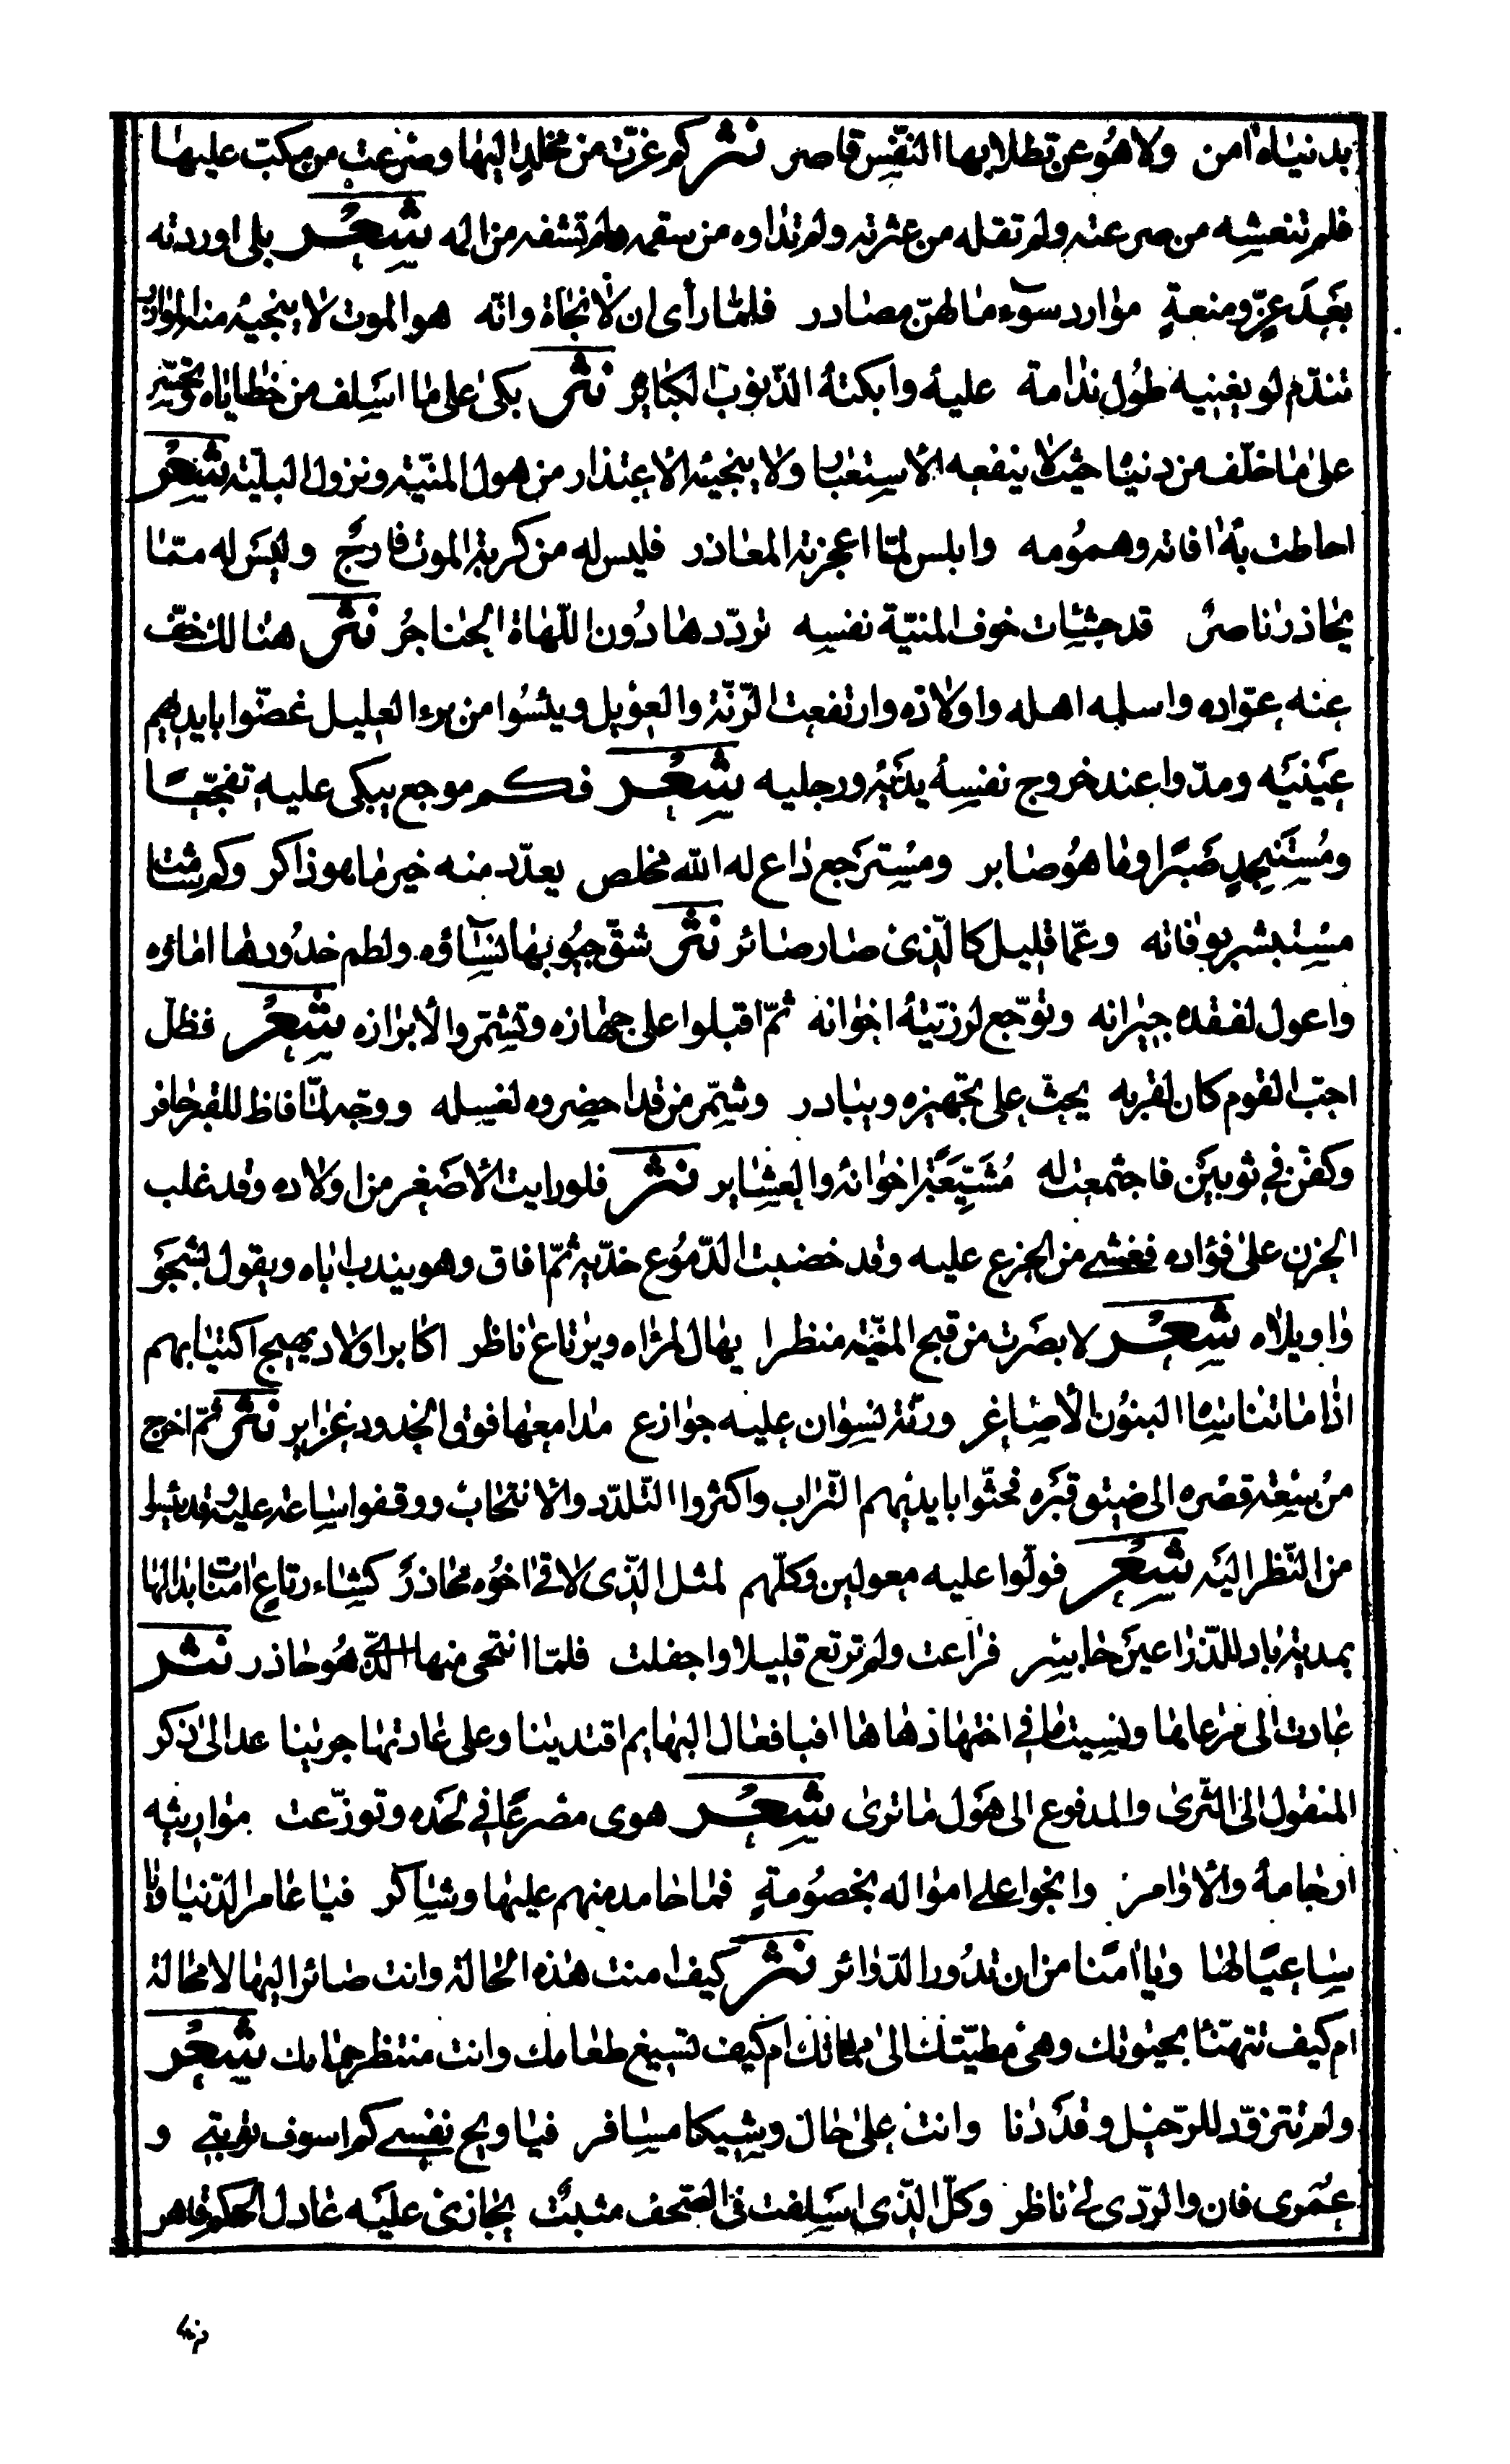 بدنیاه امن ولا هو عن تطلابها النفس قاصر نثر کم غرّت من مخلد الیها وصرعت من مکبّ علیها
فلم تنعشه من صرعته ولم تقله من عثرته ولم تداوه من سقمه ولم تشفه من المه شعر بلی اوردته
بعد عزّ ومنعةٍ موارد سوء ما لهنّ مصادر فلمّا رأی ان لا نجاة وانّه هو الموت لا ینجیه منه الموازر
تندّم لو یغنیه طول ندامة علیه وابکته الذنوب الکبایر نثر بکی علی ما اسلف من خطایاه وتحسّر
علی ما خلّف من دنیا حیث لا ینفعه الاستعبار ولا ینجیه الاعتذار من هول المنیّة ونزول البلیّة شعر
احاطت به افاته وهمومه وابلس لمّا اعجزته المعاذر فلیس له من کربة الموت فارج ولیس له ممّا
یحاذر ناصر قد جشأت خوف المنیّة نفسه تردّدها دون اللّهاة الحناجر نثر هنالک خفّ
عنه عوّاده واسلمه اهله واولاده وارتفعت الرّنّة والعویل ویئسوا من برء العلیل غضّوا بایدیهم
عینیه ومدّوا عند خروج نفسه یدیه ورجلیه شعر فکم موجع یبکی علیه تفجّعًا
ومستنجدٍ صبرًا وما هو صابر ومسترجع داع له الله مخلص یعدّد منه خیر ما هو ذاکر وکم شامتا
مستبشر بوفاته وعمّا قلیل کالّذی صار صائر نثر شقّ جیوبها نساؤه ولطم خدودها اماؤه
واعول لفقده جیرانه وتوجّع لرزیّته اخوانه ثمّ اقبلوا علی جهازه وتشمّروا لابرازه شعر فظلّ
احبّ القوم کان لقربه یحثّ علی تجهیزه ویبادر وشمّر من قد احضروه لغسله ووجّه لمّا فاظ للقبر حافر
وکفّن فی ثوبین فاجتمعت له مشیّعة اخوانه والعشایر نثر فلو رایت الاصغر من اولاده وقد غلب
الحزن علی فؤاده فغشی من الجزع علیه وقد خضبت الدّموع خدّیه ثمّ افاق وهو یندب اباه ویقول بشجو
واویلاه شعر لابصرت من قبح المنیّة منظرا یهال لمراه ویرتاع ناظر اکابر اولاد یهیج اکتیابهم
اذا ما تناسا البنون الاصاغر ورنّة نسوان علیه جوازع مدامعها فوق الخدود غزایر نثر ثمّ اخرج
من سعة قصره الی ضیق قبره فحثّوا بایدیهم التّراب واکثروا التّلدّد والانتحاب ووقفوا ساعة علیه وقد یئسوا
من النّظر الیه شعر فولّوا علیه معولین وکلّهم لمثل الّذی لاقی اخوه محاذر کشاء رتاع امنات بدالها
بمدیته باد للذّراعین حاسر فراعت ولم ترتع قلیلا واجفلت فلمّا انتحی منها الّذی هو حاذر نثر
عادت الی مرعاها ونسیت ما فی اختها دهاها افبافعال البهایم اقتدینا وعلی عادتها جرینا عد الی ذکر
المنقول الی الثّری والمدفوع الی هول ما تری شعر هوی مصرعًا فی لحده وتوزّعت مواریثه
ارحامه والاوامر وانحوا علی امواله بخصومةٍ فما حامد منهم علیها وشاکر فیا عامر الدّنیا ویا
ساعیًا لها ویا امنًا من ان تدور الدّوائر نثر کیف امنت هذه الحالة وانت صائر الیها لا محالة
ام کیف تتهنّا بحیوتک وهی مطیّتک الی مماتک ام کیف تسیغ طعامک وانت منتظر حمامک شعر
ولم تتزوّد للرّحیل وقد دنا وانت علی حال وشیکا مسافر فیا ویح نفسی کم اسوف توبتی و
عمری فان والرّدی لی ناظر وکلّ الّذی اسلفت فی الصّحف مثبت یجازی علیه عادل الحکم قاهر